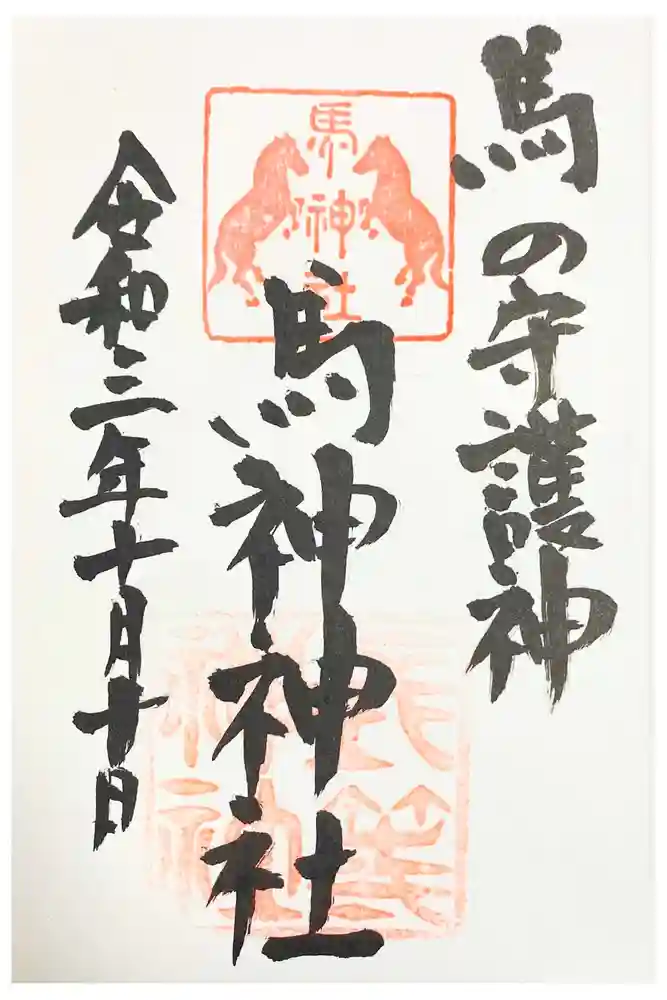 馬の守護神
馬神社
馬神神社
令和三年十月十日